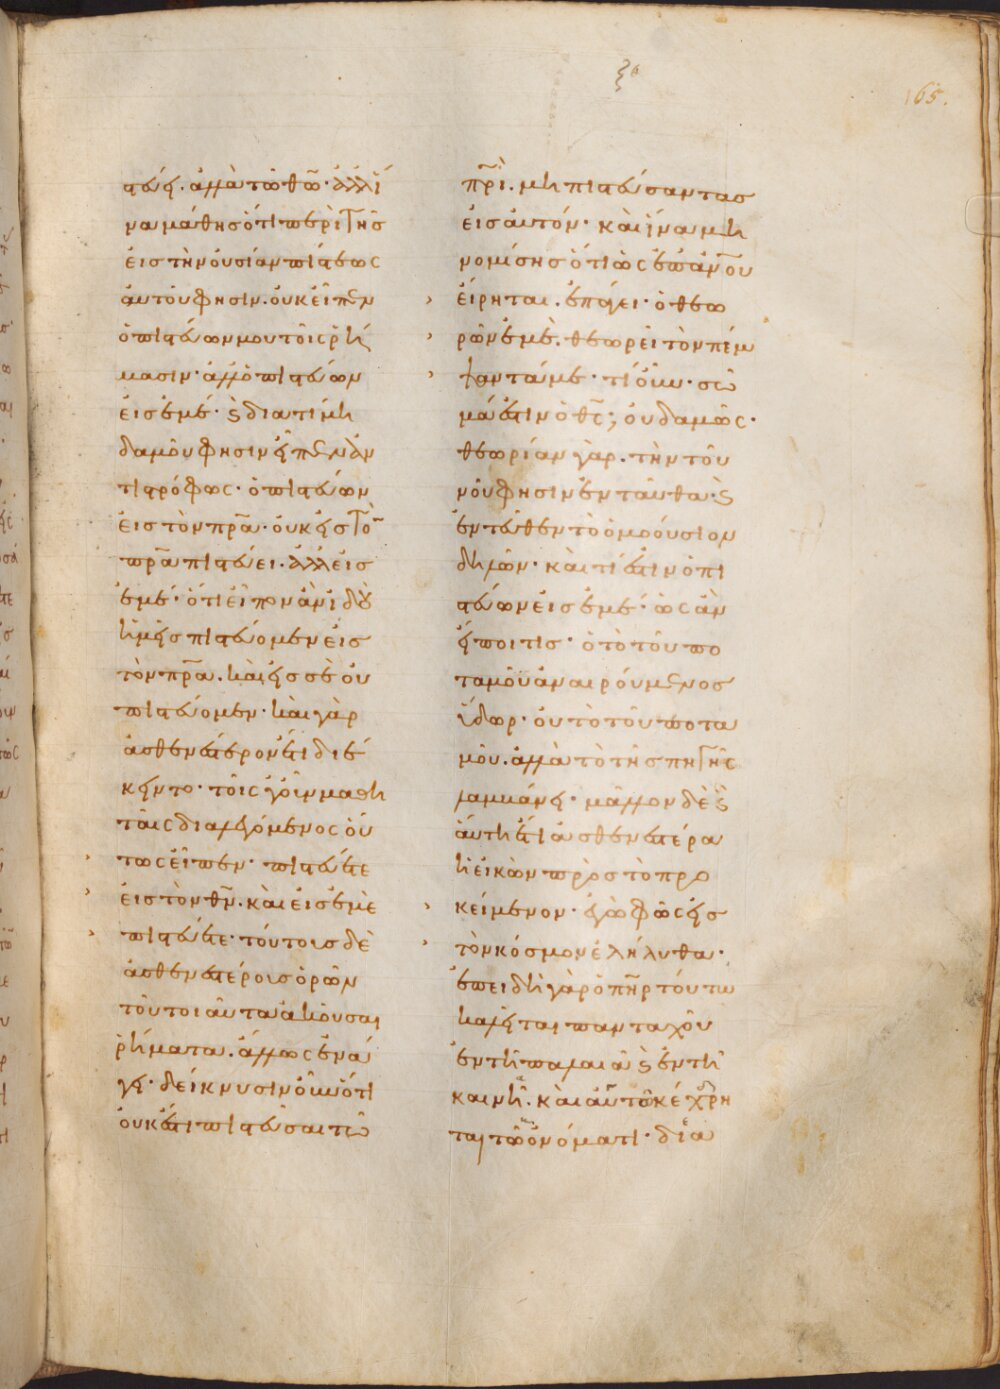 ξθ
165.
στεύει. ἀλλὰ τῶ θῶ· ἀλλ' ἵ
να μάθης ὅτι περὶ τῆς
εἰς τὴν οὐσίαν πίστεως
αὐτοῦ φησιν. οὐκ εἶπεν
ὁ πιστεύων μου τοῖς ῥή
μασιν· ἀλλ' ὁ πιστεύων
εἰς ἐμέ· καὶ διατί μη
δαμοῦ φησιν εἶπεν ἀν
τιστρόφως· ὁ πιστεύων
εἰς τὸν πρα· οὐκ εἰς τὸν
πρα πιστεύει. ἀλλ' εἰς
ἐμέ· ὅτι εἶπον ἂν ἰδοὺ
ἡμεῖς πιστεύομεν εἰς
τὸν πρα. καὶ εἰς σὲ οὐ
πιστεύομεν· καὶ γὰρ
ἀσθενέστερον ἔτι διέ
κειντο· τοῖς γοῦν μαθη
ταῖς διαλεγόμενος οὕ
τως εἶπεν· πιστεύετε
εἰς τὸν θν. καὶ εἰς ἐμὲ
πιστεύετε· τούτοις δὲ
ἀσθενεστέροις ὁρῶν
τούτοι αὐτὰ ἀκοῦσαι
ῥήματα. ἄλλως ἐνά
γει· δείκνυσιν οὖν ὅτι
οὐκ ἔστι πιστεῦσαι τῶ
πρι. μὴ πιστεύσαντας
εἰς αὐτόν· καὶ ἵνα μὴ
νομίσης ὅτι ὡς ἐπὶ ανου
εἴρηται. ἐπάγει· ὁ θεω
ρῶν ἐμὲ. θεωρεῖ τὸν πέμ
ψαντά με· τί οὖν· σῶ
μά ἐστιν ὁ θς; οὐδαμῶς·
θεωρίαν γὰρ. τὴν τοῦ
νοῦ φησιν ἐνταῦθα· καὶ
ἐντεῦθεν τὸ ὁμοούσιον
δηλῶν· καὶ τί ἐστιν ὁ πι
στεύων εἰς ἐμέ· ὡς ἂν
εἴποι τις· ὁ τὸ τοῦ πο
ταμοῦ ἀναιρούμενος
ὕδωρ· οὐ τὸ τοῦ ποτα
μοῦ. ἀλλὰ τὸ τῆς πηγῆς
λαμβάνει· μᾶλλον δὲ καὶ
αὕτη ἔτι ἀσθενεστέρα
ἡ εἰκὼν πρὸς τὸ προ
κείμενον· ἐγὼ φῶς εἰς
τὸν κόσμον ἐλήλυθα·
ἐπειδὴ γὰρ ὁ πηρ τούτω
καλεῖται πανταχοῦ
ἐν τῆ παλαιᾶ καὶ ἐν τῆ
καινῆ. καὶ αὐτὸς κέχρη
ται τῶ ὀνόματι· διὰ